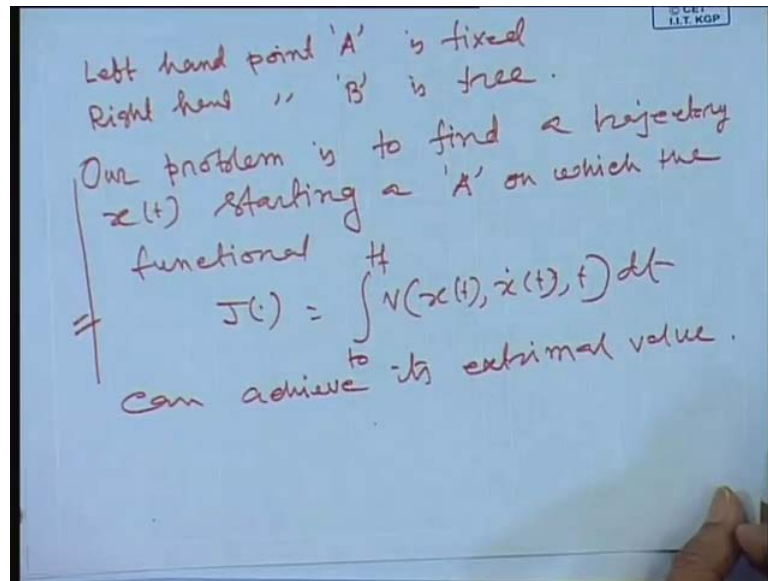 © CET
I.I.T. KGP
Left hand point 'A' is fixed
Right hand " 'B' is free.
Our problem is to find a trajectory
x(t) starting a 'A' on which the
functional
J(.) = ∫_{t0}^{tf} V(x(t), ẋ(t), t) dt
can achieve its extrimal value.